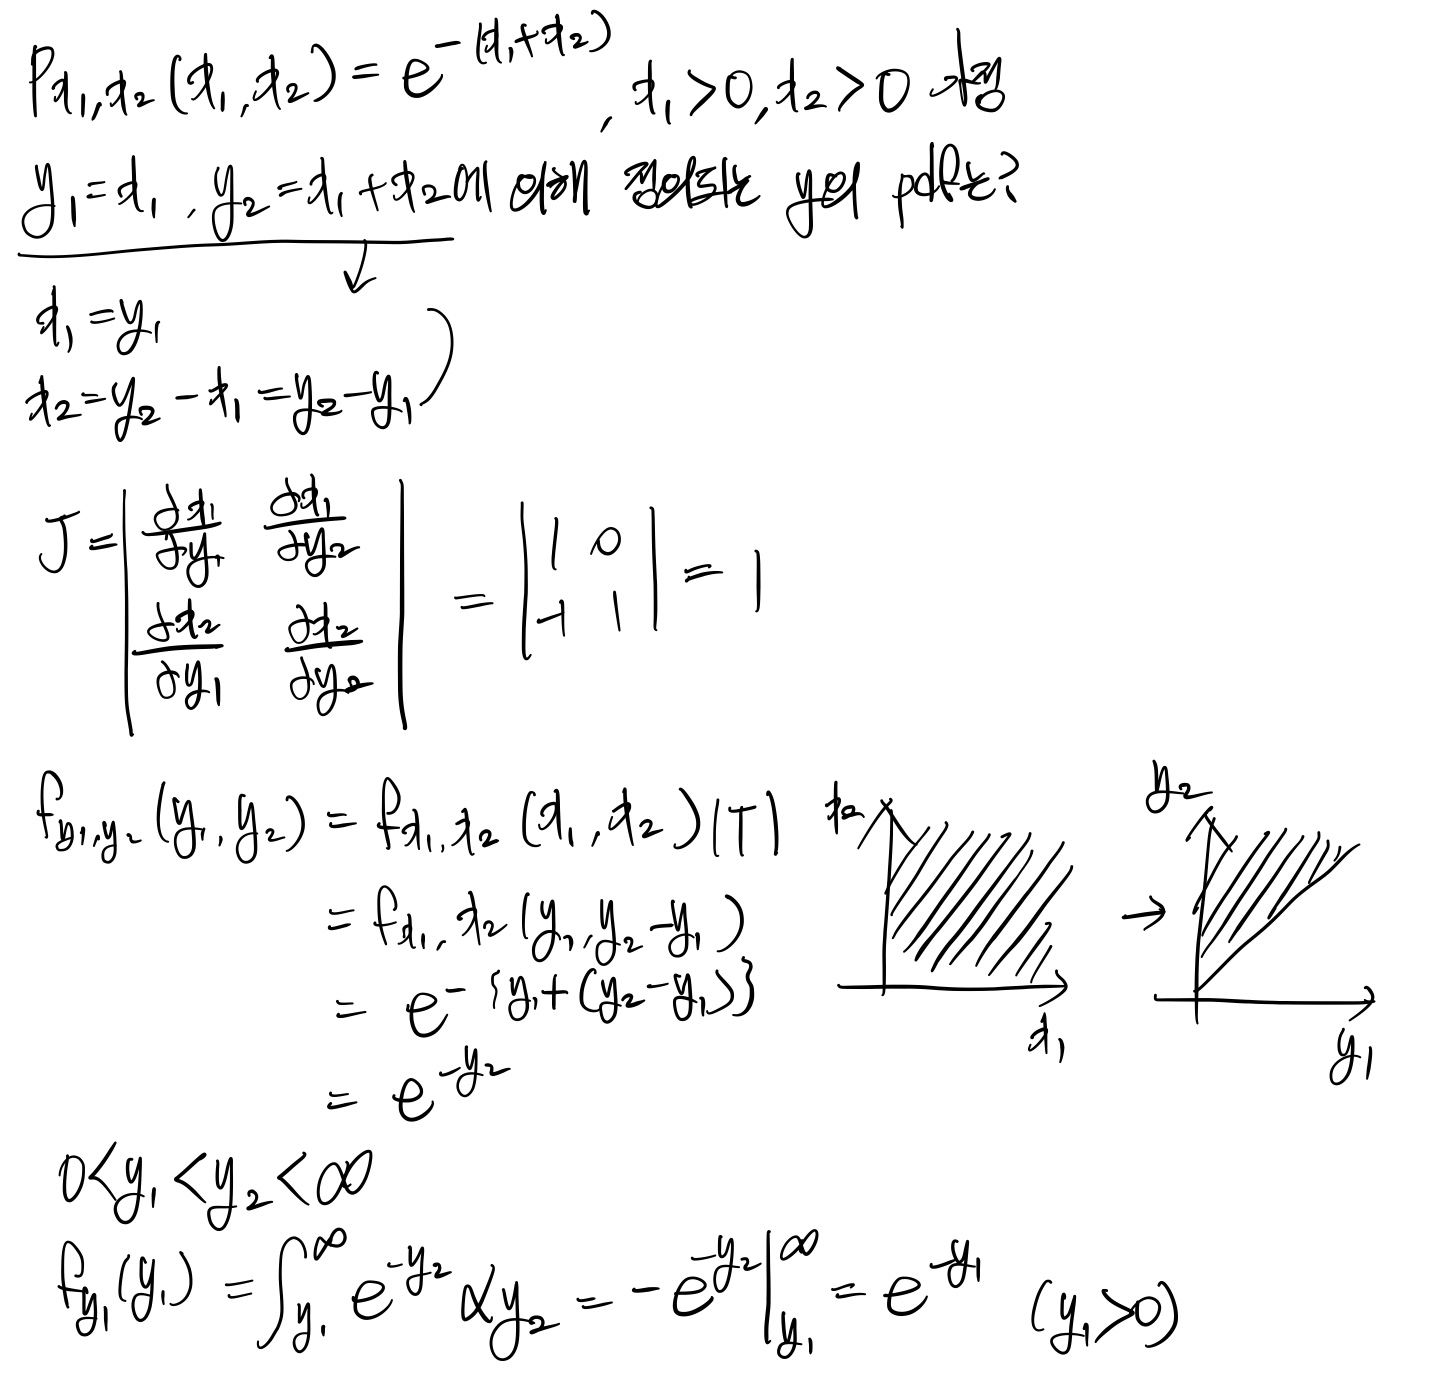 P_{x₁,x₂}(x₁,x₂) = e^{-(x₁+x₂)}, x₁>0, x₂>0 가정
y₁=x₁, y₂=x₁+x₂에 의해 정의되는 y의 pdf는?
x₁=y₁
x₂=y₂-x₁=y₂-y₁
J = | ∂x₁/∂y₁ ∂x₁/∂y₂ | = | 1 0 | = 1
| ∂x₂/∂y₁ ∂x₂/∂y₂ | | -1 1 |
f_{y₁,y₂}(y₁,y₂) = f_{x₁,x₂}(x₁,x₂)|J|
= f_{x₁,x₂}(y₁,y₂-y₁)
= e^{-{y₁+(y₂-y₁)}}
= e^{-y₂}
x₂
x₁
→
y₂
y₁
0<y₁<y₂<∞
f_{y₁}(y₁) = ∫_{y₁}^{∞} e^{-y₂} dy₂ = -e^{-y₂}|_{y₁}^{∞} = e^{-y₁} (y₁>0)